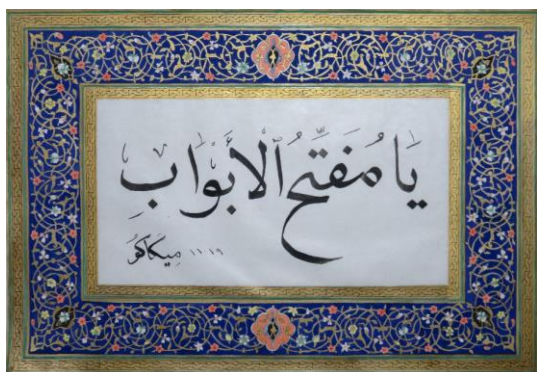 يَا مُفَتِّحُ ٱلْأَبْوَابِ
مِيكَاكُو ١١٠١٩